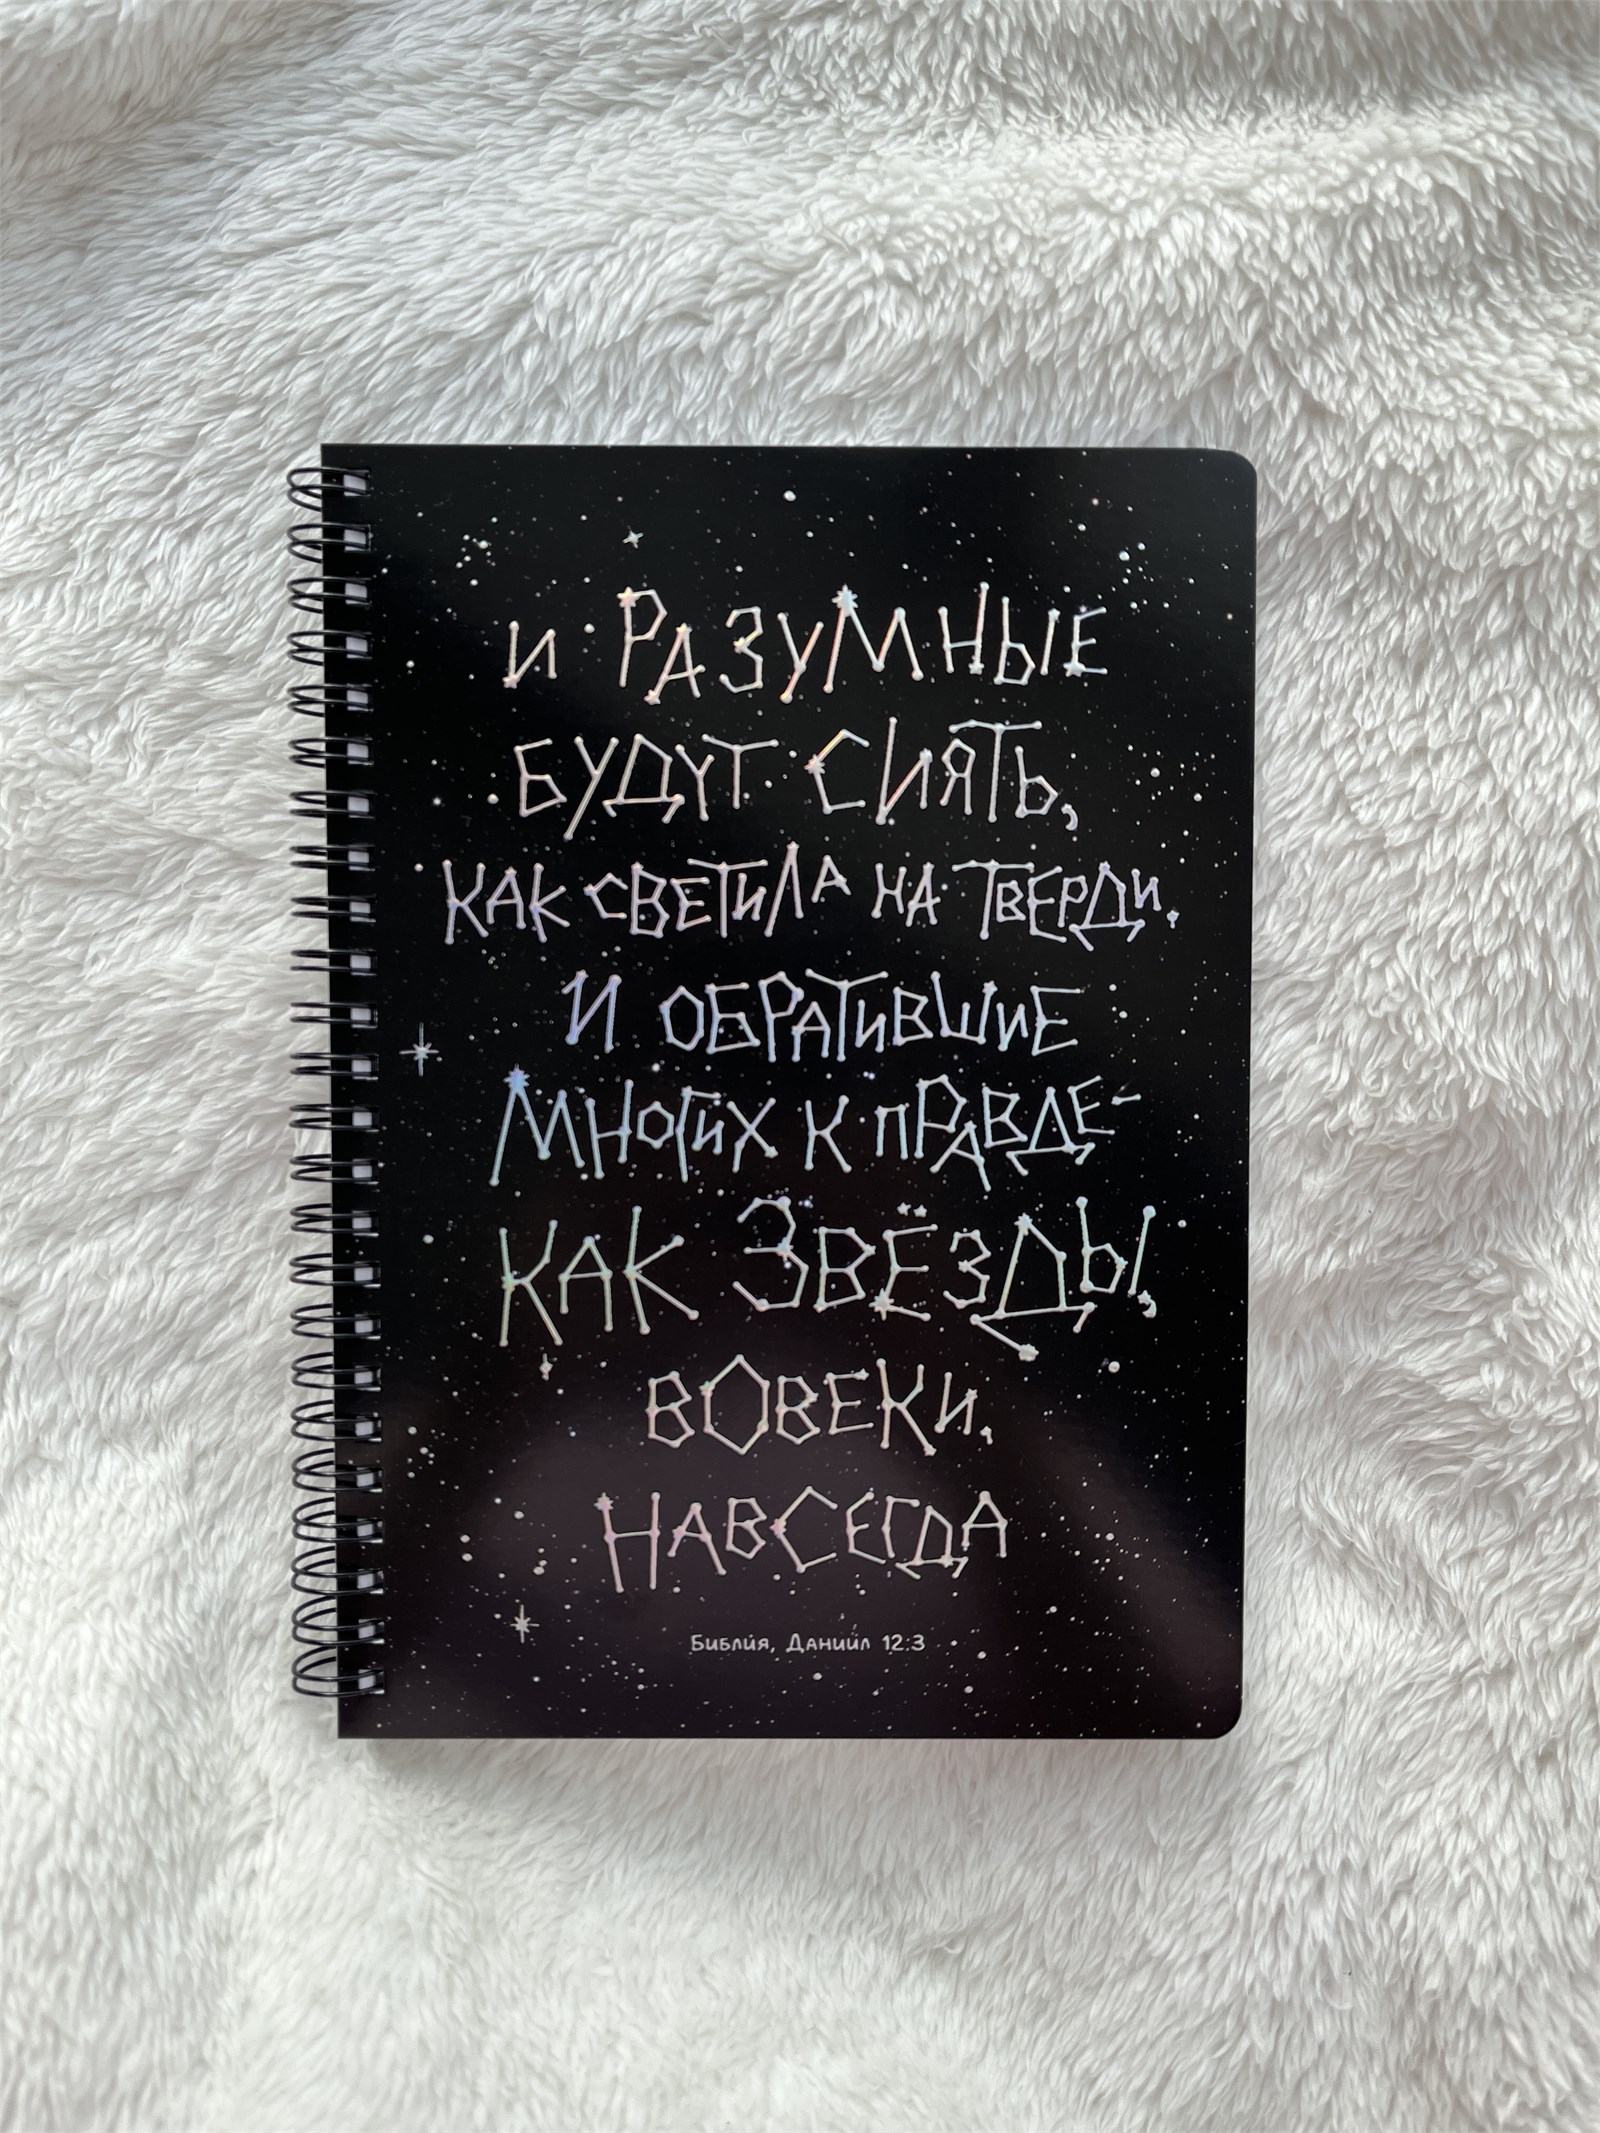 и РАЗУМНЫЕ
БУДУТ СИЯТЬ,
КАК СВЕТИЛА НА ТВЕРДИ,
И ОБРАТИВШИЕ
МНОГИХ К ПРАВДЕ-
КАК ЗВЁЗДЫ,
ВОВЕКИ,
НАВСЕГДА
Библия, Даниил 12:3